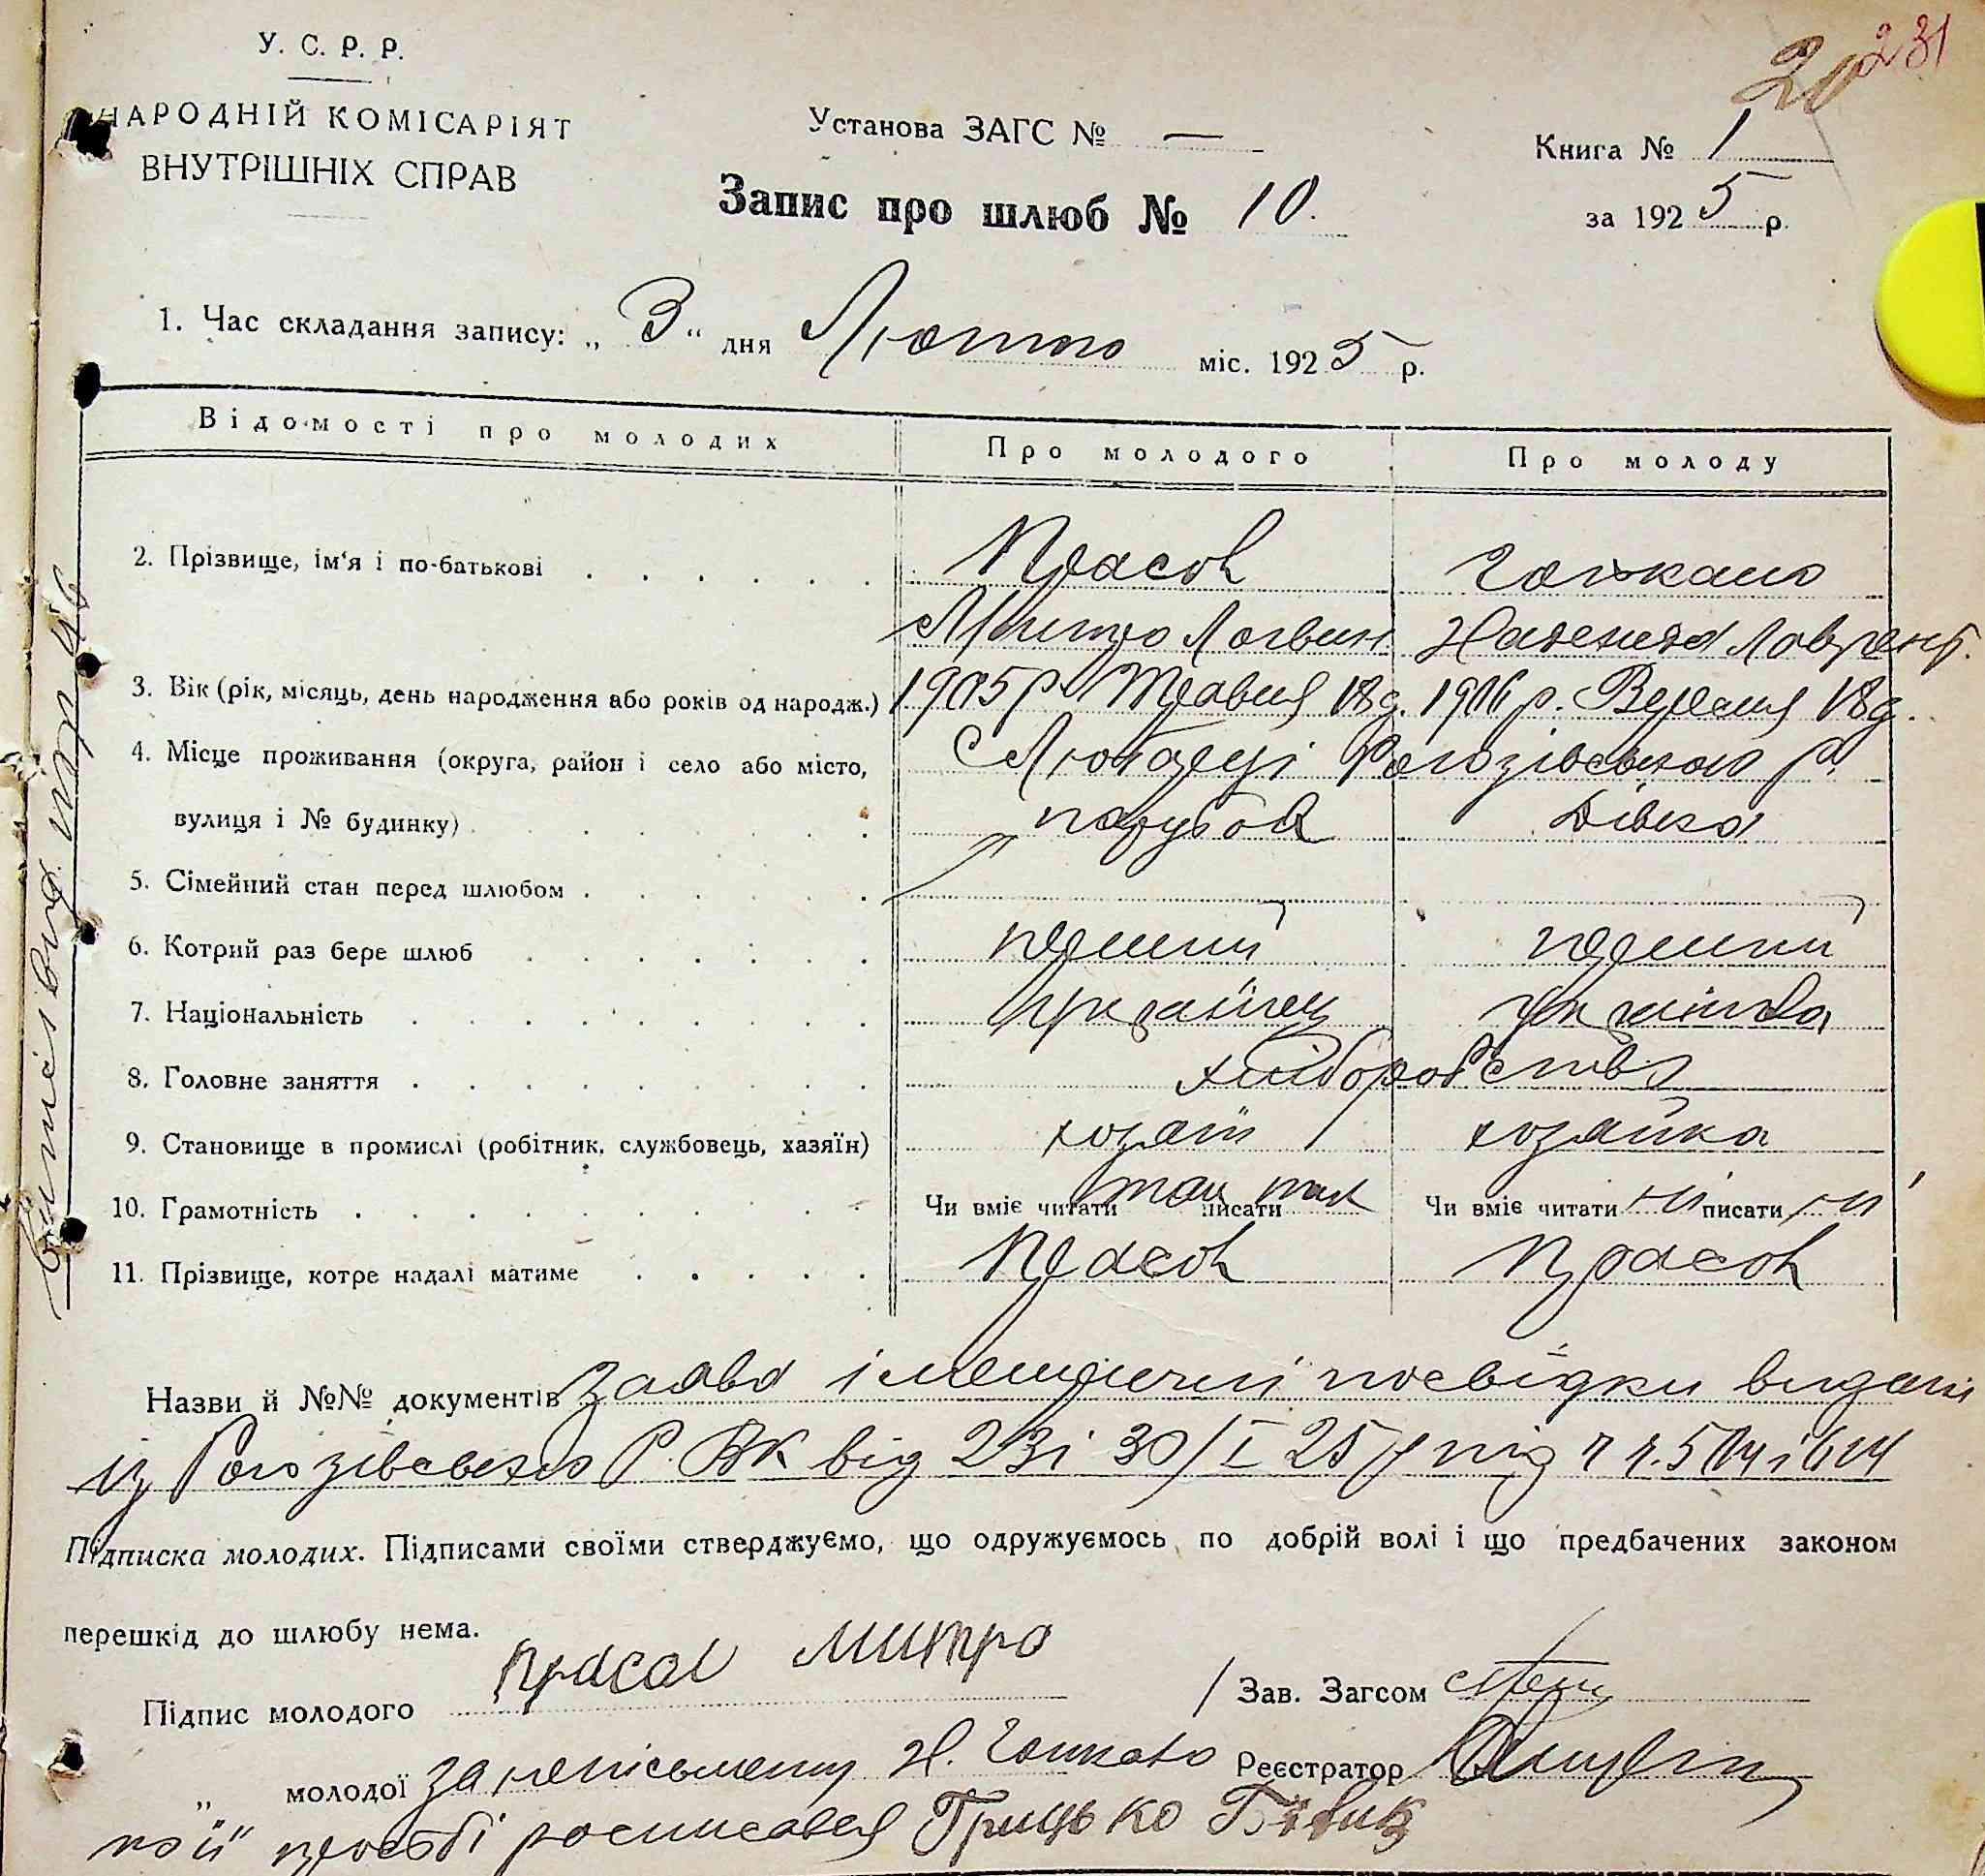 20 231
У. С. Р. Р.
НАРОДНІЙ КОМІСАРІЯТ
ВНУТРІШНІХ СПРАВ
Установа ЗАГС № —
Книга № 1
Запис про шлюб № 10.
за 1925 р.
1. Час складання запису: „3“ дня Лютого міс. 1925 р.
Відомості про молодих Про молодого Про молоду
2. Прізвище, ім‘я і по-батькові Прасол
Митро Логвин.
3. Вік (рік, місяць, день народження або років од народж.) 1905 р. Травня 18 д. р. Вересня 18 д.
4. Місце проживання (округа, район і село або місто, С Любарці Рогозівського р.
вулиця і № будинку) парубок дівка
5. Сімейний стан перед шлюбом
6. Котрий раз бере шлюб перший перший
7. Національність Українец Українка
8. Головне заняття хліборобство
9. Становище в промислі (робітник, службовець, хазяїн) хозяїн хозяйка
10. Грамотність Чи вміє читати так писати так Чи вміє читати ні писати ні
11. Прізвище, котре надалі матиме Прасол Прасол
Назви й №№ документів заява і посвідки видані
із Рогозівського РВК від 23 і 30/I 25 р під
Підписка молодих. Підписами своїми стверджуємо, що одружуємось по добрій волі і що предбачених законом
перешкід до шлюбу нема.
Підпис молодого Прасол Митро
Зав. Загсом
„ молодої за неписьменну Н.
Реєстратор
по її просьбі росписався Грицько